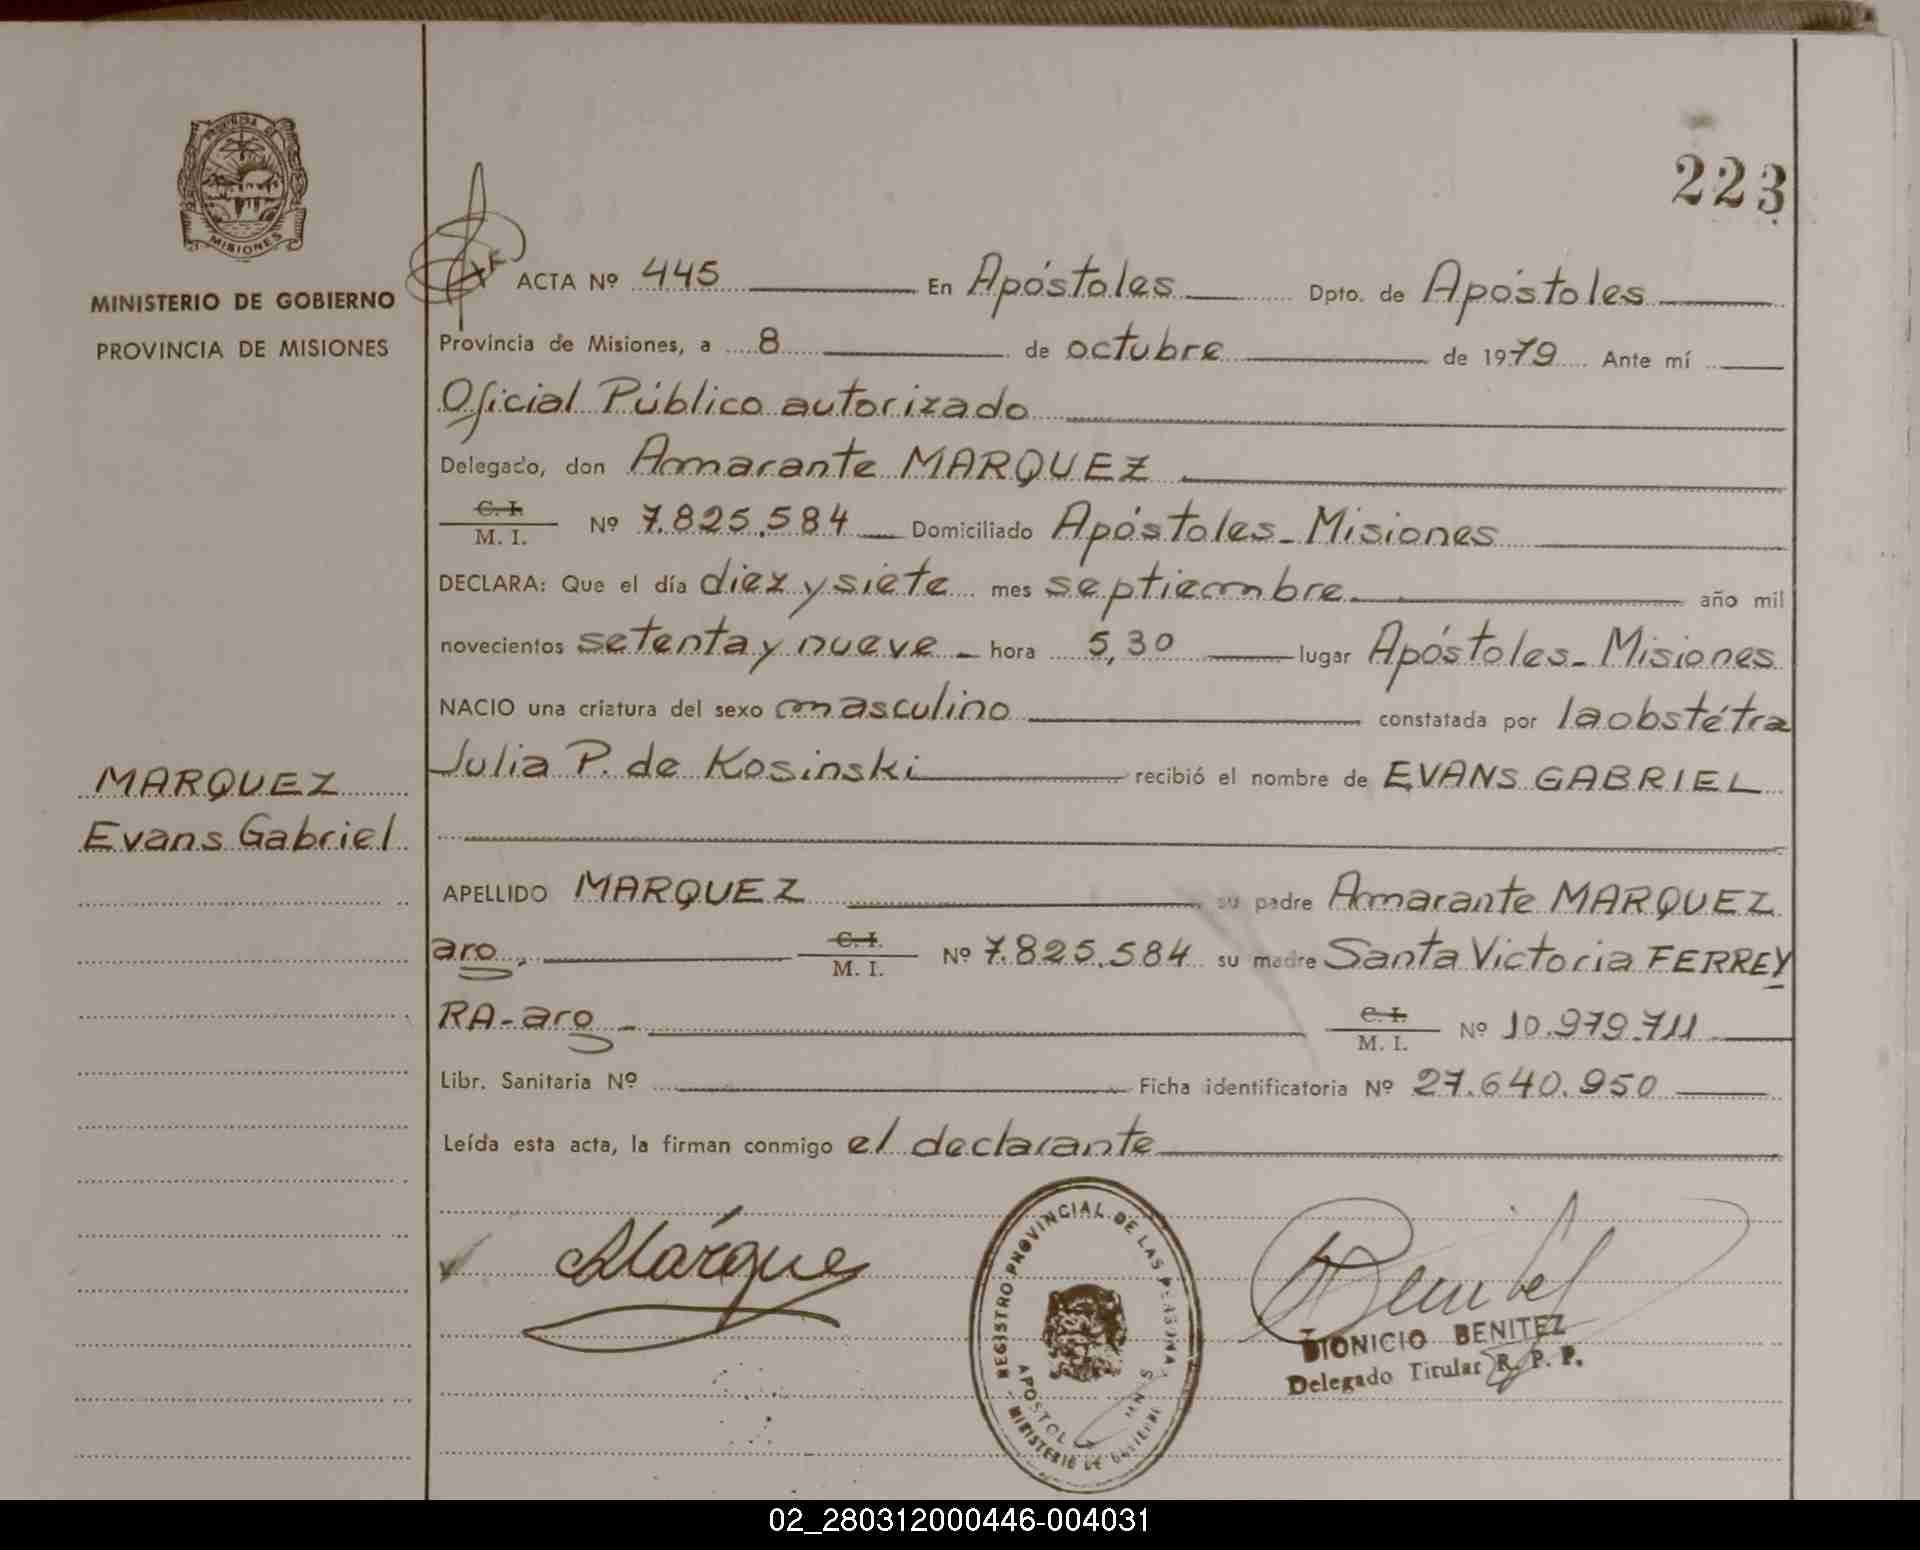 PROVINCIA DE
MISIONES
MINISTERIO DE GOBIERNO
PROVINCIA DE MISIONES
223
ACTA Nº 445 En Apóstoles Dpto. de Apóstoles
Provincia de Misiones, a 8 de octubre de 1979 Ante mí
Oficial Público autorizado
Delegado, don Amarante MARQUEZ
C. I.
M. I. Nº 7.825.584 Domiciliado Apóstoles - Misiones
DECLARA: Que el día diez y siete mes septiembre año mil
novecientos setenta y nueve - hora 5,30 lugar Apóstoles - Misiones
NACIO una criatura del sexo masculino constatada por la obstétra
Julia P. de Kosinski recibió el nombre de EVANS GABRIEL
MARQUEZ
Evans Gabriel
APELLIDO MARQUEZ su padre Amarante MARQUEZ
aro. C. I. M. I. Nº 7.825.584 su madre Santa Victoria FERREY
RA - aro - C. I. M. I. Nº 10.979.711
Libr. Sanitaria Nº Ficha identificatoria Nº 27.640.950
Leída esta acta, la firman conmigo el declarante
Márque
REGISTRO PROVINCIAL DE LAS PERSONAS
MINISTERIO DE GOBIERNO
DIONICIO BENITEZ
Delegado Titular R. P. P.
02_280312000446-004031